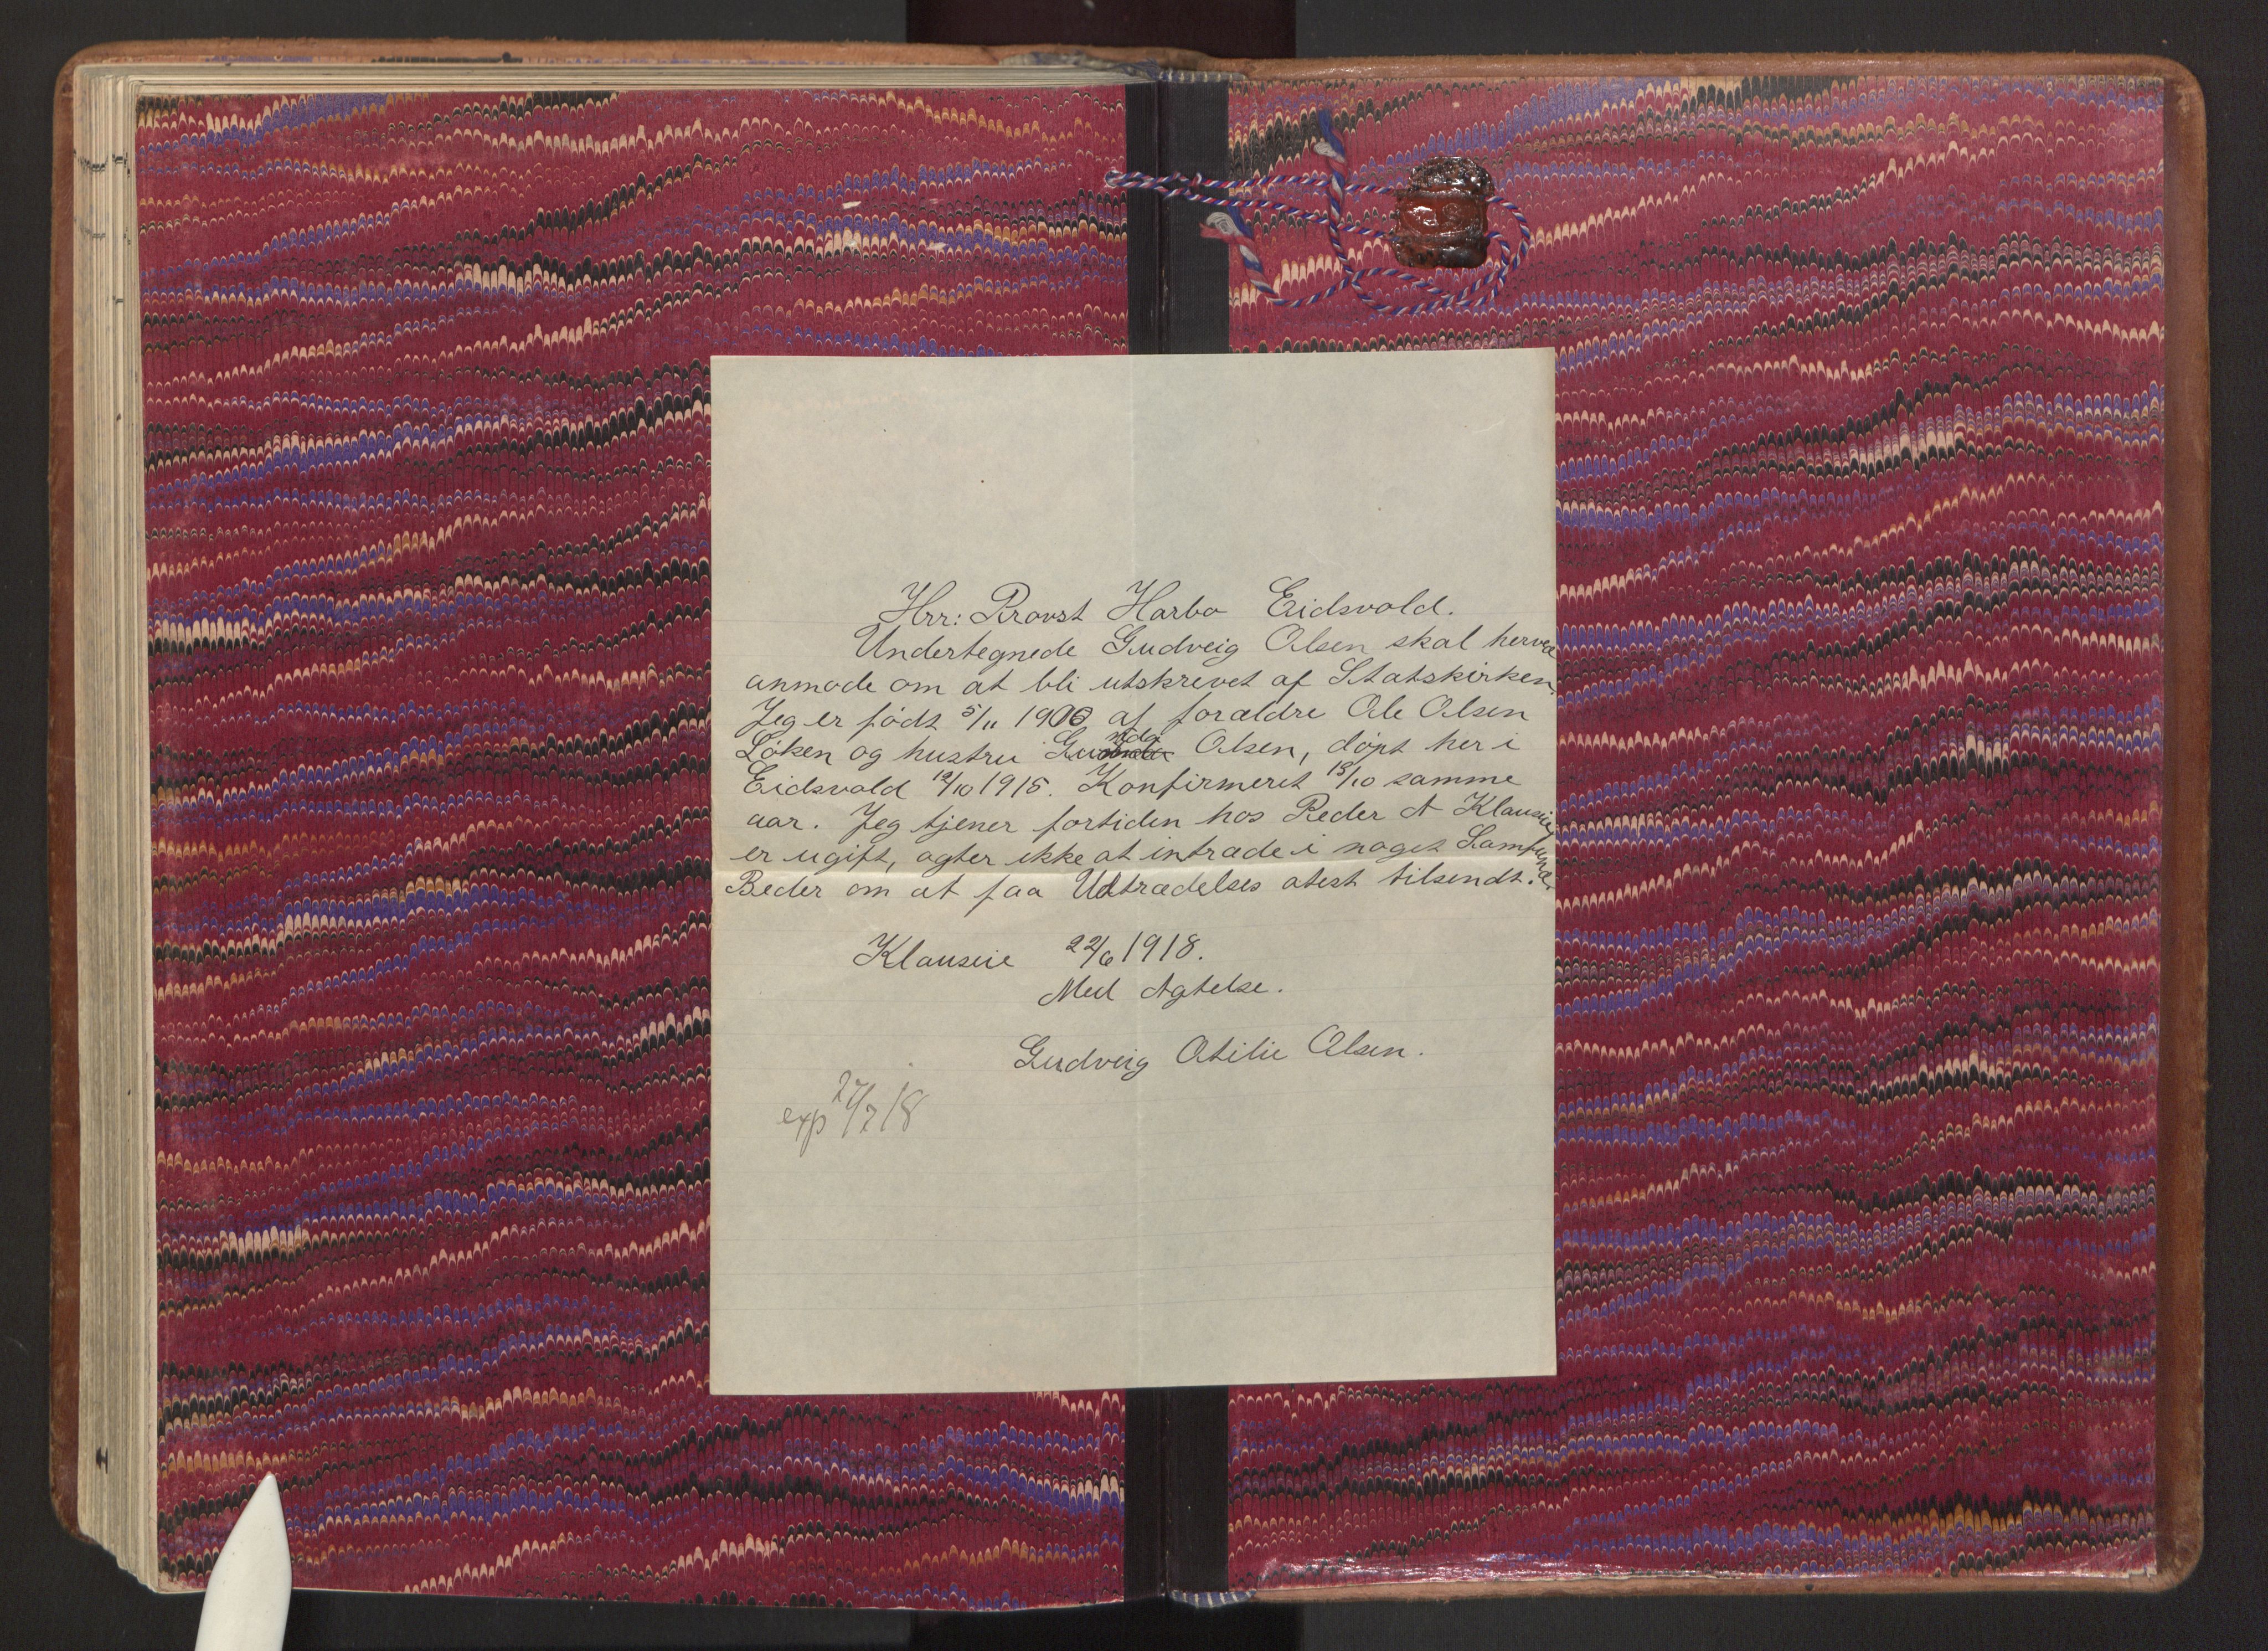 Hrr: Provst Harbo Eidsvold.
Undertegnede Gudveig Olsen skal herved
anmode om at bli utskrevet af Statskirken.
Jeg er født 5/11 1900 af forældre Ole Olsen
Løken og hustru Gunda Olsen, døpt her i
Eidsvold 12/10 1915. Konfirmeret 13/10 samme
aar. Jeg tjener fortiden hos Reder A Klauseie,
er ugift, agter ikke at intræde i noget Samfund.
Beder om at faa Udtrædelses atest tilsendt.
Klauseie 22/6 1918.
Med Agtelse.
Gudveig Otilie Olsen.
exp 27/7 18